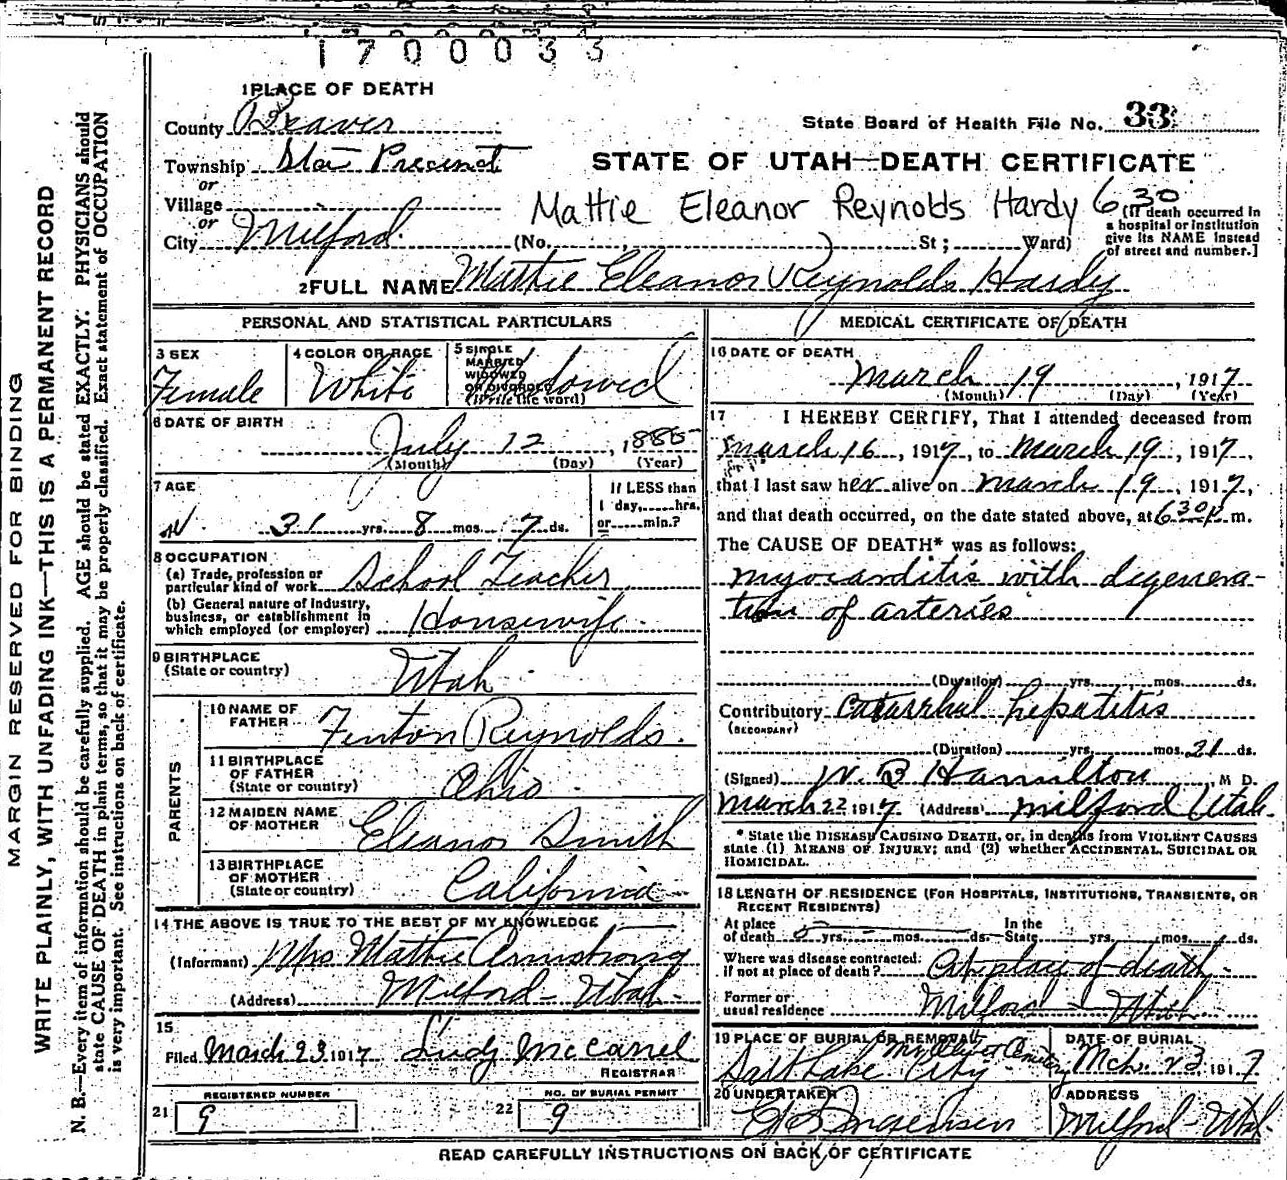 1700033
1 PLACE OF DEATH
County Beaver
State Board of Health File No. 33
Township Star Precinct
or
Village
or
City Milford
STATE OF UTAH—DEATH CERTIFICATE
Mattie Eleanor Reynolds Hardy 6 30
(No. St; Ward)
[If death occurred in
a hospital or institution
give its NAME instead
of street and number.]
2 FULL NAME Mattie Eleanor Reynolds Hardy
PERSONAL AND STATISTICAL PARTICULARS
3 SEX
Female
4 COLOR OR RACE
White
5 SINGLE
MARRIED
WIDOWED
OR DIVORCED
(Write the word)
Widowed
6 DATE OF BIRTH
July 12, 1885
(Month) (Day) (Year)
7 AGE
31 yrs. 8 mos. 7 ds.
If LESS than
1 day, hrs.
or min.?
8 OCCUPATION
(a) Trade, profession or
particular kind of work School Teacher
(b) General nature of industry,
business, or establishment in
which employed (or employer) Housewife
9 BIRTHPLACE
(State or country) Utah
PARENTS
10 NAME OF
FATHER Fenton Reynolds
11 BIRTHPLACE
OF FATHER
(State or country) Ohio
12 MAIDEN NAME
OF MOTHER Eleanor Smith
13 BIRTHPLACE
OF MOTHER
(State or country) California
14 THE ABOVE IS TRUE TO THE BEST OF MY KNOWLEDGE
(Informant) Mrs Mattie Armstrong
(Address) Milford - Utah
15
Filed March 23 1917 Judy McCarrel
REGISTRAR
REGISTERED NUMBER
21 9
NO. OF BURIAL PERMIT
22 9
MEDICAL CERTIFICATE OF DEATH
16 DATE OF DEATH
March 19, 1917
(Month) (Day) (Year)
17 I HEREBY CERTIFY, That I attended deceased from
March 16, 1917, to March 19, 1917,
that I last saw her alive on March 19, 1917,
and that death occurred, on the date stated above, at 6 30 p m.
The CAUSE OF DEATH* was as follows:
Myocarditis with degenera-
tion of arteries
(Duration) yrs. mos. ds.
Contributory Catarrhal hepatitis
(SECONDARY)
(Duration) yrs. mos. 21 ds.
(Signed) W. B Hamilton M D.
March 22 1917 (Address) Milford Utah.
* State the DISEASE CAUSING DEATH, or, in deaths from VIOLENT CAUSES
state (1) MEANS OF INJURY; and (2) whether ACCIDENTAL, SUICIDAL OR
HOMICIDAL.
18 LENGTH OF RESIDENCE (FOR HOSPITALS, INSTITUTIONS, TRANSIENTS, OR
RECENT RESIDENTS)
At place In the
of death 5 yrs. mos. ds. State yrs. mos. ds.
Where was disease contracted,
if not at place of death? At place of death
Former or
usual residence Milford - Utah
19 PLACE OF BURIAL OR REMOVAL
Salt Lake City
DATE OF BURIAL
Mch. 23 1917
20 UNDERTAKER
ADDRESS
Milford - Utah
READ CAREFULLY INSTRUCTIONS ON BACK OF CERTIFICATE
MARGIN RESERVED FOR BINDING
WRITE PLAINLY, WITH UNFADING INK—THIS IS A PERMANENT RECORD
N. B.—Every item of information should be carefully supplied. AGE should be stated EXACTLY. PHYSICIANS should
state CAUSE OF DEATH in plain terms, so that it may be properly classified. Exact statement of OCCUPATION
is very important. See instructions on back of certificate.